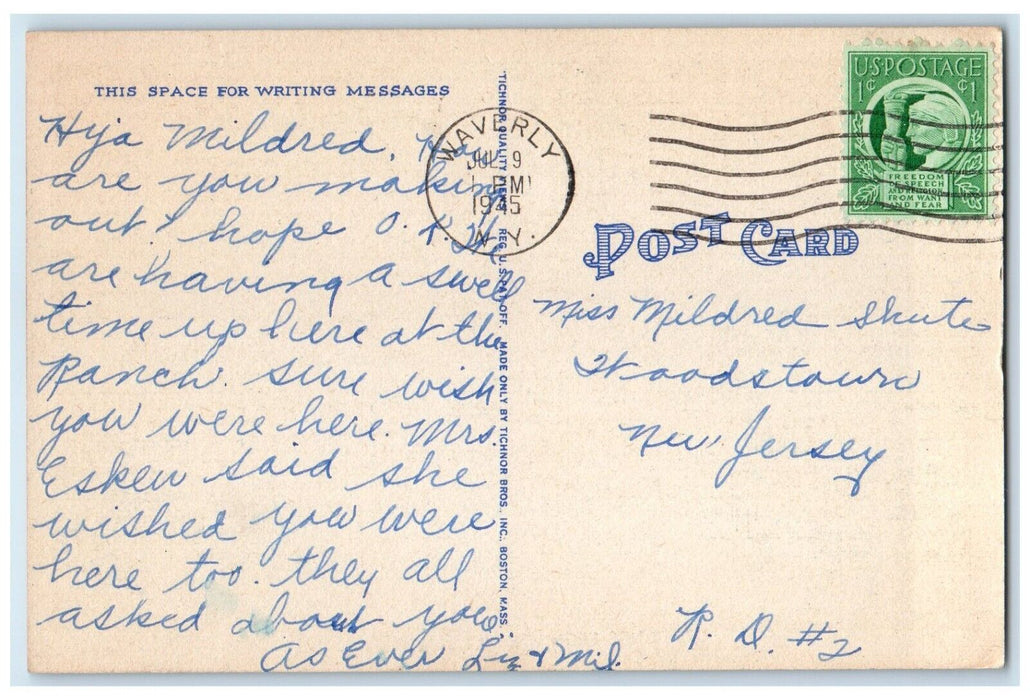 THIS SPACE FOR WRITING MESSAGES
Hya Mildred, Ho
are you making
out? hope O.K. We
are having a swell
time up here at the
Ranch. sure wish
you were here. Mrs.
Eskew said she
wished you were
here too. they all
asked about you.
As Ever Liz & Mil.
TICHNOR QUALITY VIEWS REG. U.S. PAT. OFF. MADE ONLY BY TICHNOR BROS., INC., BOSTON, MASS.
WAVERLY
JUL 9
1 PM
1945
N.Y.
U·S·POSTAGE
1¢ ¢1
FREEDOM
OF SPEECH
AND RELIGION
FROM WANT
AND FEAR
POST CARD
Miss Mildred Shute
Woodstown
New Jersey
R. D. #2